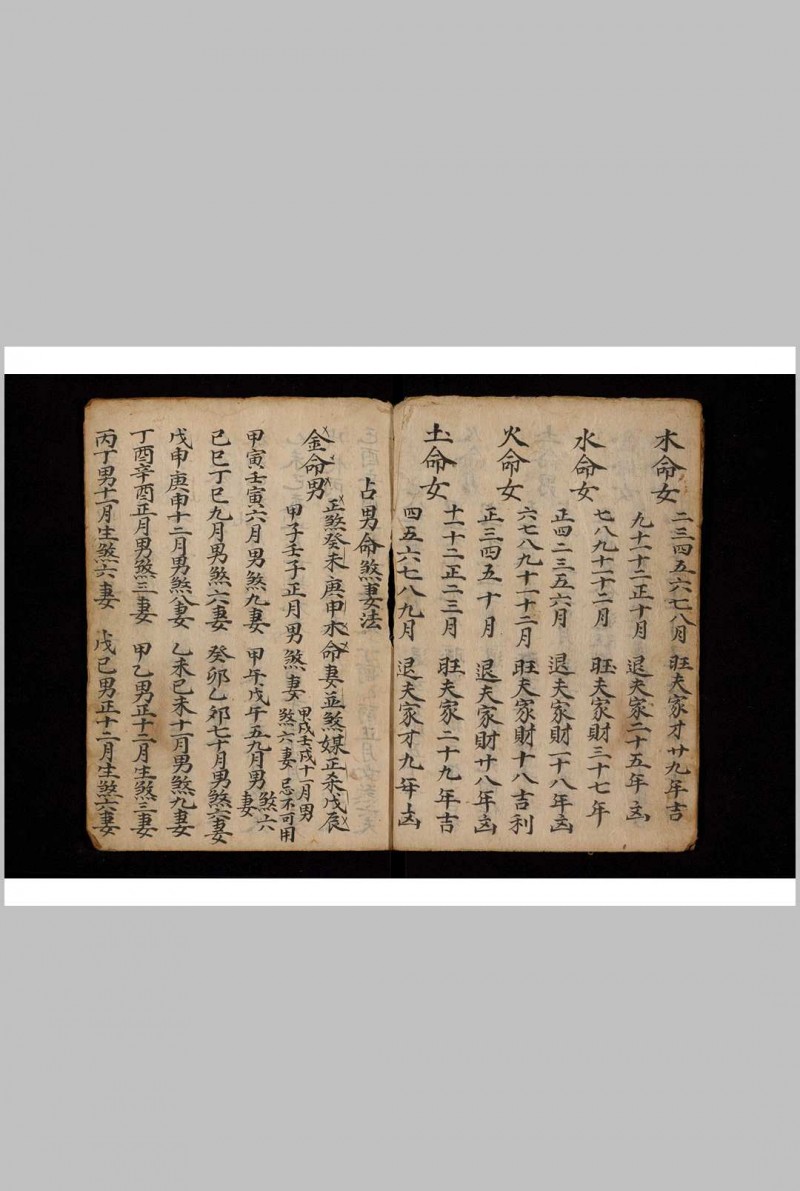 木命女
二三四五六七八月 旺夫家才廿九年吉
九十一十二正十月 退夫家二十五年凶
水命女
七八九十一十二月 旺夫家財三十七年
正四二三五六月 退夫家財一十八年凶
火命女
六七八九十一十二月 旺夫家財十八吉利
正三四五十月 退夫家財廿八年凶
土命女
十一十二正二三月 旺夫家二十九年吉
四五六七八九月 退夫家才九年凶
占男命煞妻法
金命男
正煞癸未庚申木命妻並煞媒正杀戊辰
甲子壬子正月男煞妻 甲戌壬戌十一月男煞六妻 忌不可用
甲寅壬寅六月男煞九妻 甲午戊午五九月男煞六妻
己巳丁巳九月男煞六妻 癸卯乙卯七十月男煞六妻
戊申庚申十二月男煞八妻 乙未己未十一月男煞九妻
丁酉辛酉正月男煞三妻 甲乙男正十二月生煞三妻
丙丁男十一月生煞六妻 戊己男正十二月生煞六妻